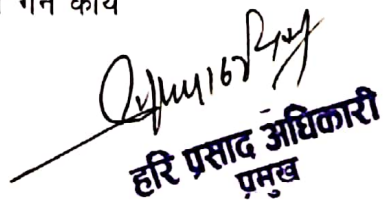 गर्ने कार्य
हरि प्रसाद अधिकारी
प्रमुख